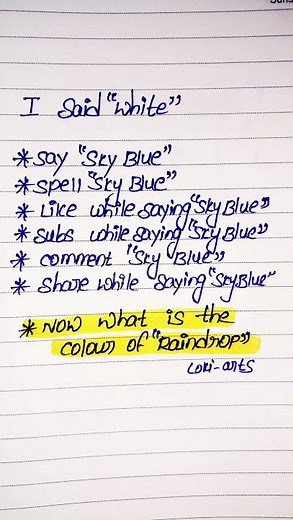 I said "white"
* say "Sky Blue"
* spell "Sky Blue"
* Like while saying "Sky Blue"
* subs while saying "Sky Blue"
* comment "Sky Blue"
* Share while saying "Sky Blue"
* Now what is the
colour of "Raindrop"
Lori-arts